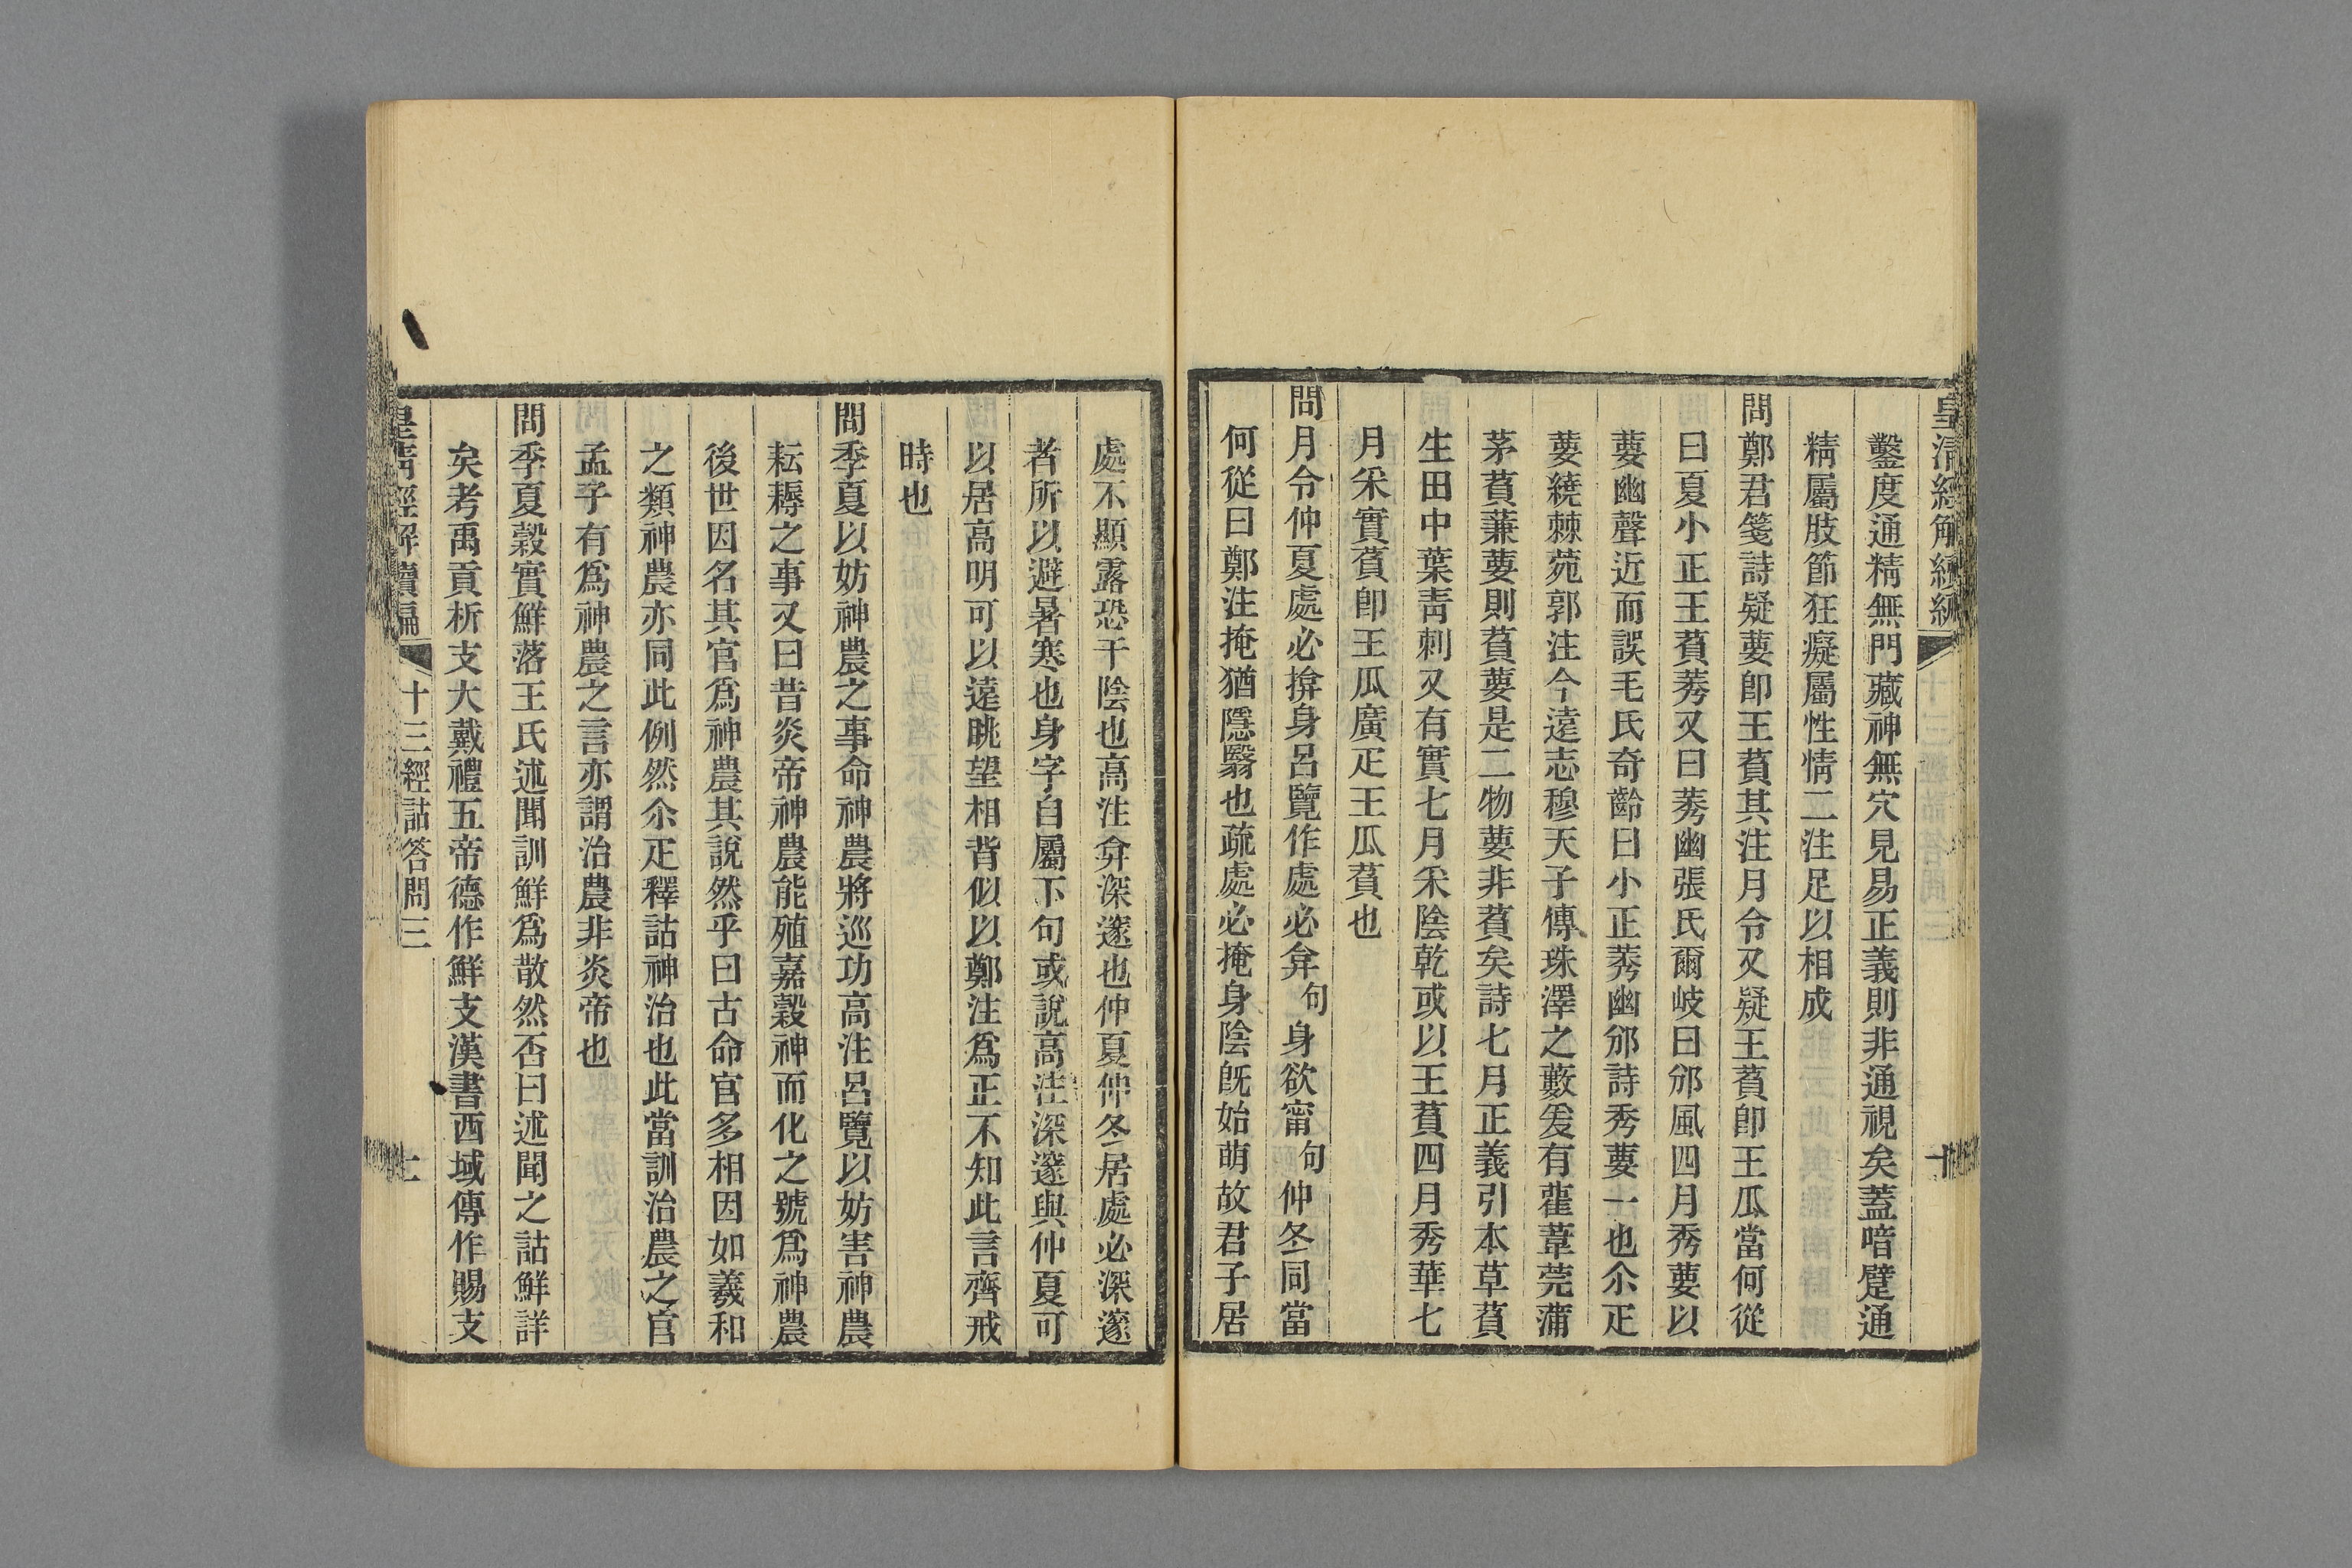 皇清經解續編
十
鑿度通精無門藏神無穴見易正義則非通視矣蓋喑躄通
精屬肢節狂癡屬性情二注足以相成
問鄭君箋詩疑葽卽王萯其注月令又疑王萯卽王瓜當何從
曰夏小正王萯莠又曰莠幽張氏爾岐曰邠風四月秀葽以
葽幽聲近而誤毛氏奇齡曰小正莠幽邠詩秀葽一也尒疋
葽繞棘菀郭注今遠志穆天子傳珠澤之藪爰有雚葦莞蒲
茅萯蒹葽則萯葽是二物葽非萯矣詩七月正義引本草萯
生田中葉靑刺又有實七月采陰乾或以王萯四月秀華七
月采實萯卽王瓜廣疋王瓜萯也
問月令仲夏處必揜身呂覽作處必弇句身欲甯句仲冬同當
何從曰鄭注掩猶隱翳也疏處必掩身陰旣始萌故君子居
處不顯露恐干陰也高注弇深邃也仲夏仲冬居處必深邃
者所以避暑寒也身字自屬下句或說高注深邃與仲夏可
以居高明可以遠眺望相背似以鄭注爲正不知此言齊戒
時也
問季夏以妨神農之事命神農將巡功高注呂覽以妨害神農
耘耨之事又曰昔炎帝神農能殖嘉穀神而化之號爲神農
後世因名其官爲神農其說然乎曰古命官多相因如羲和
之類神農亦同此例然尒疋釋詁神治也此當訓治農之官
孟子有爲神農之言亦謂治農非炎帝也
問季夏穀實鮮落王氏述聞訓鮮爲散然否曰述聞之詁鮮詳
矣考禹貢析支大戴禮五帝德作鮮支漢書西域傳作賜支
皇淸經解續編
十三經詁答問三